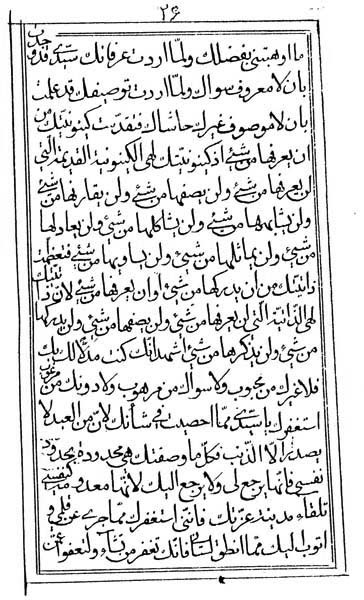 ۲۶
ما اوهبتنی بفضلك ولمّا اردت عرفانك سیّدی قد وجدت
بان لا معروف سواك ولمّا اردت توصیفك قد علمت
بان لا موصوف غیرك حاشاك فتقدّست کینونیّتك من
ان یعرفها من شیئ اذ کینونیّتك هی الکینونیة القدیمة الّتی
لن یعرفها من شیئ ولن یصفها من شیئ ولن یقارنها من شیئ
ولن یشابهها من شیئ ولن یشاکلها من شیئ ولن یعادلها
من شیئ ولن یماثلها من شیئ ولن یساویها من شیئ فتعظّمت
ذاتیّتك من ان یدرکها من شیئ وان یعرفها من شیئ لان ذاتیّتك
لهی الذاتیة الّتی لن یعرفها من شیئ ولن یصفها من شیئ ولن یدرکها
من شیئ ولن یذکرها من شیئ اشهد انّك کنت مدلالك بك
فلا غیرك من محبوب ولا سواك من مرهوب ولا دونك من مرغوب
استغفرك یا سیّدی ممّا احصیت فی شأنك لانّ من العبد لا
یصدر الّا الذنب فکلّ ما وصفتك هی محدودة بحدود
نفسی فانّها یرجع لی ولا یرجع الیك لانّها معدومة کنفسی
تلقاء مدینة عزّتك فانّنی استغفرك ممّا جری عن قلبی و
اتوب الیك ممّا انطق لسانی فانّك تغفر من تشاء ولتعفو عمّن